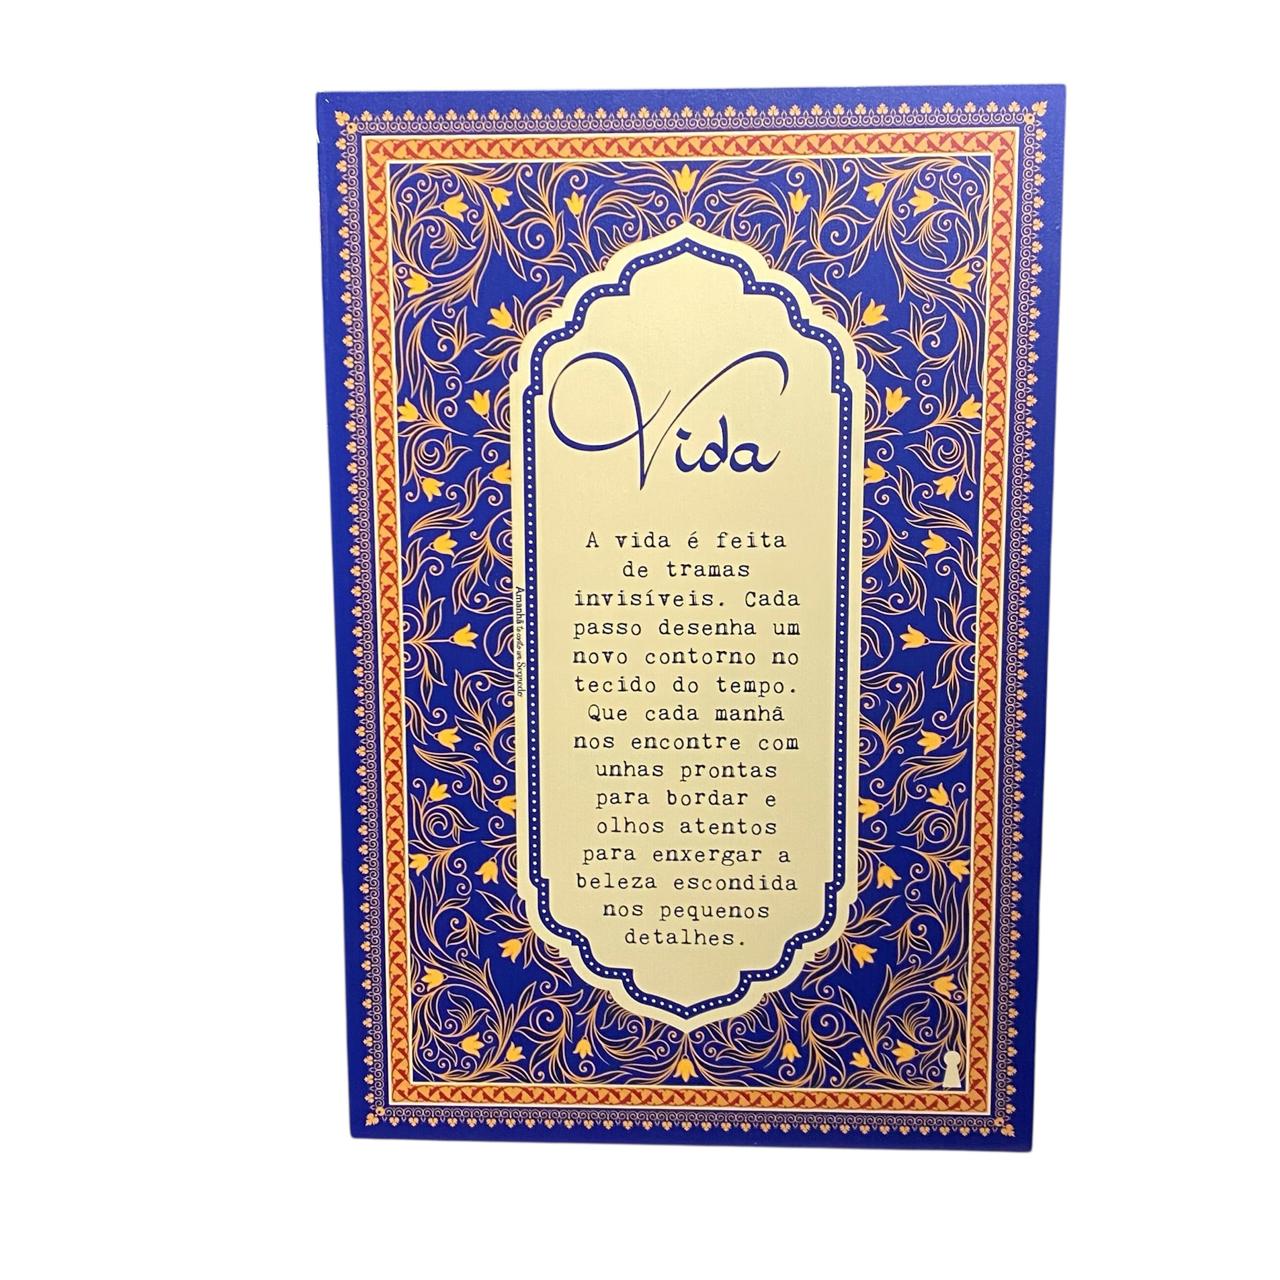 Vida
A vida é feita
de tramas
invisíveis. Cada
passo desenha um
novo contorno no
tecido do tempo.
Que cada manhã
nos encontre com
unhas prontas
para bordar e
olhos atentos
para enxergar a
beleza escondida
nos pequenos
detalhes.
Amanhã te conto um Segredo